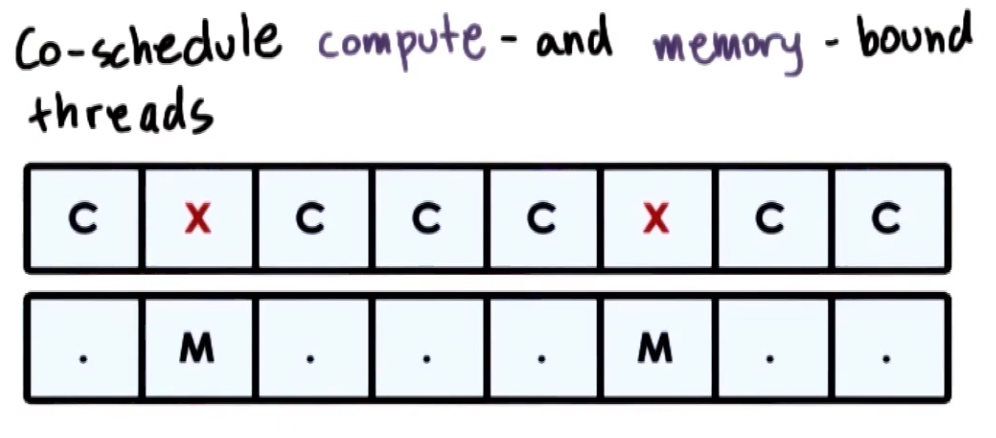 Co-schedule compute - and memory - bound
threads
C X C C C X C C
. M . . . M . .